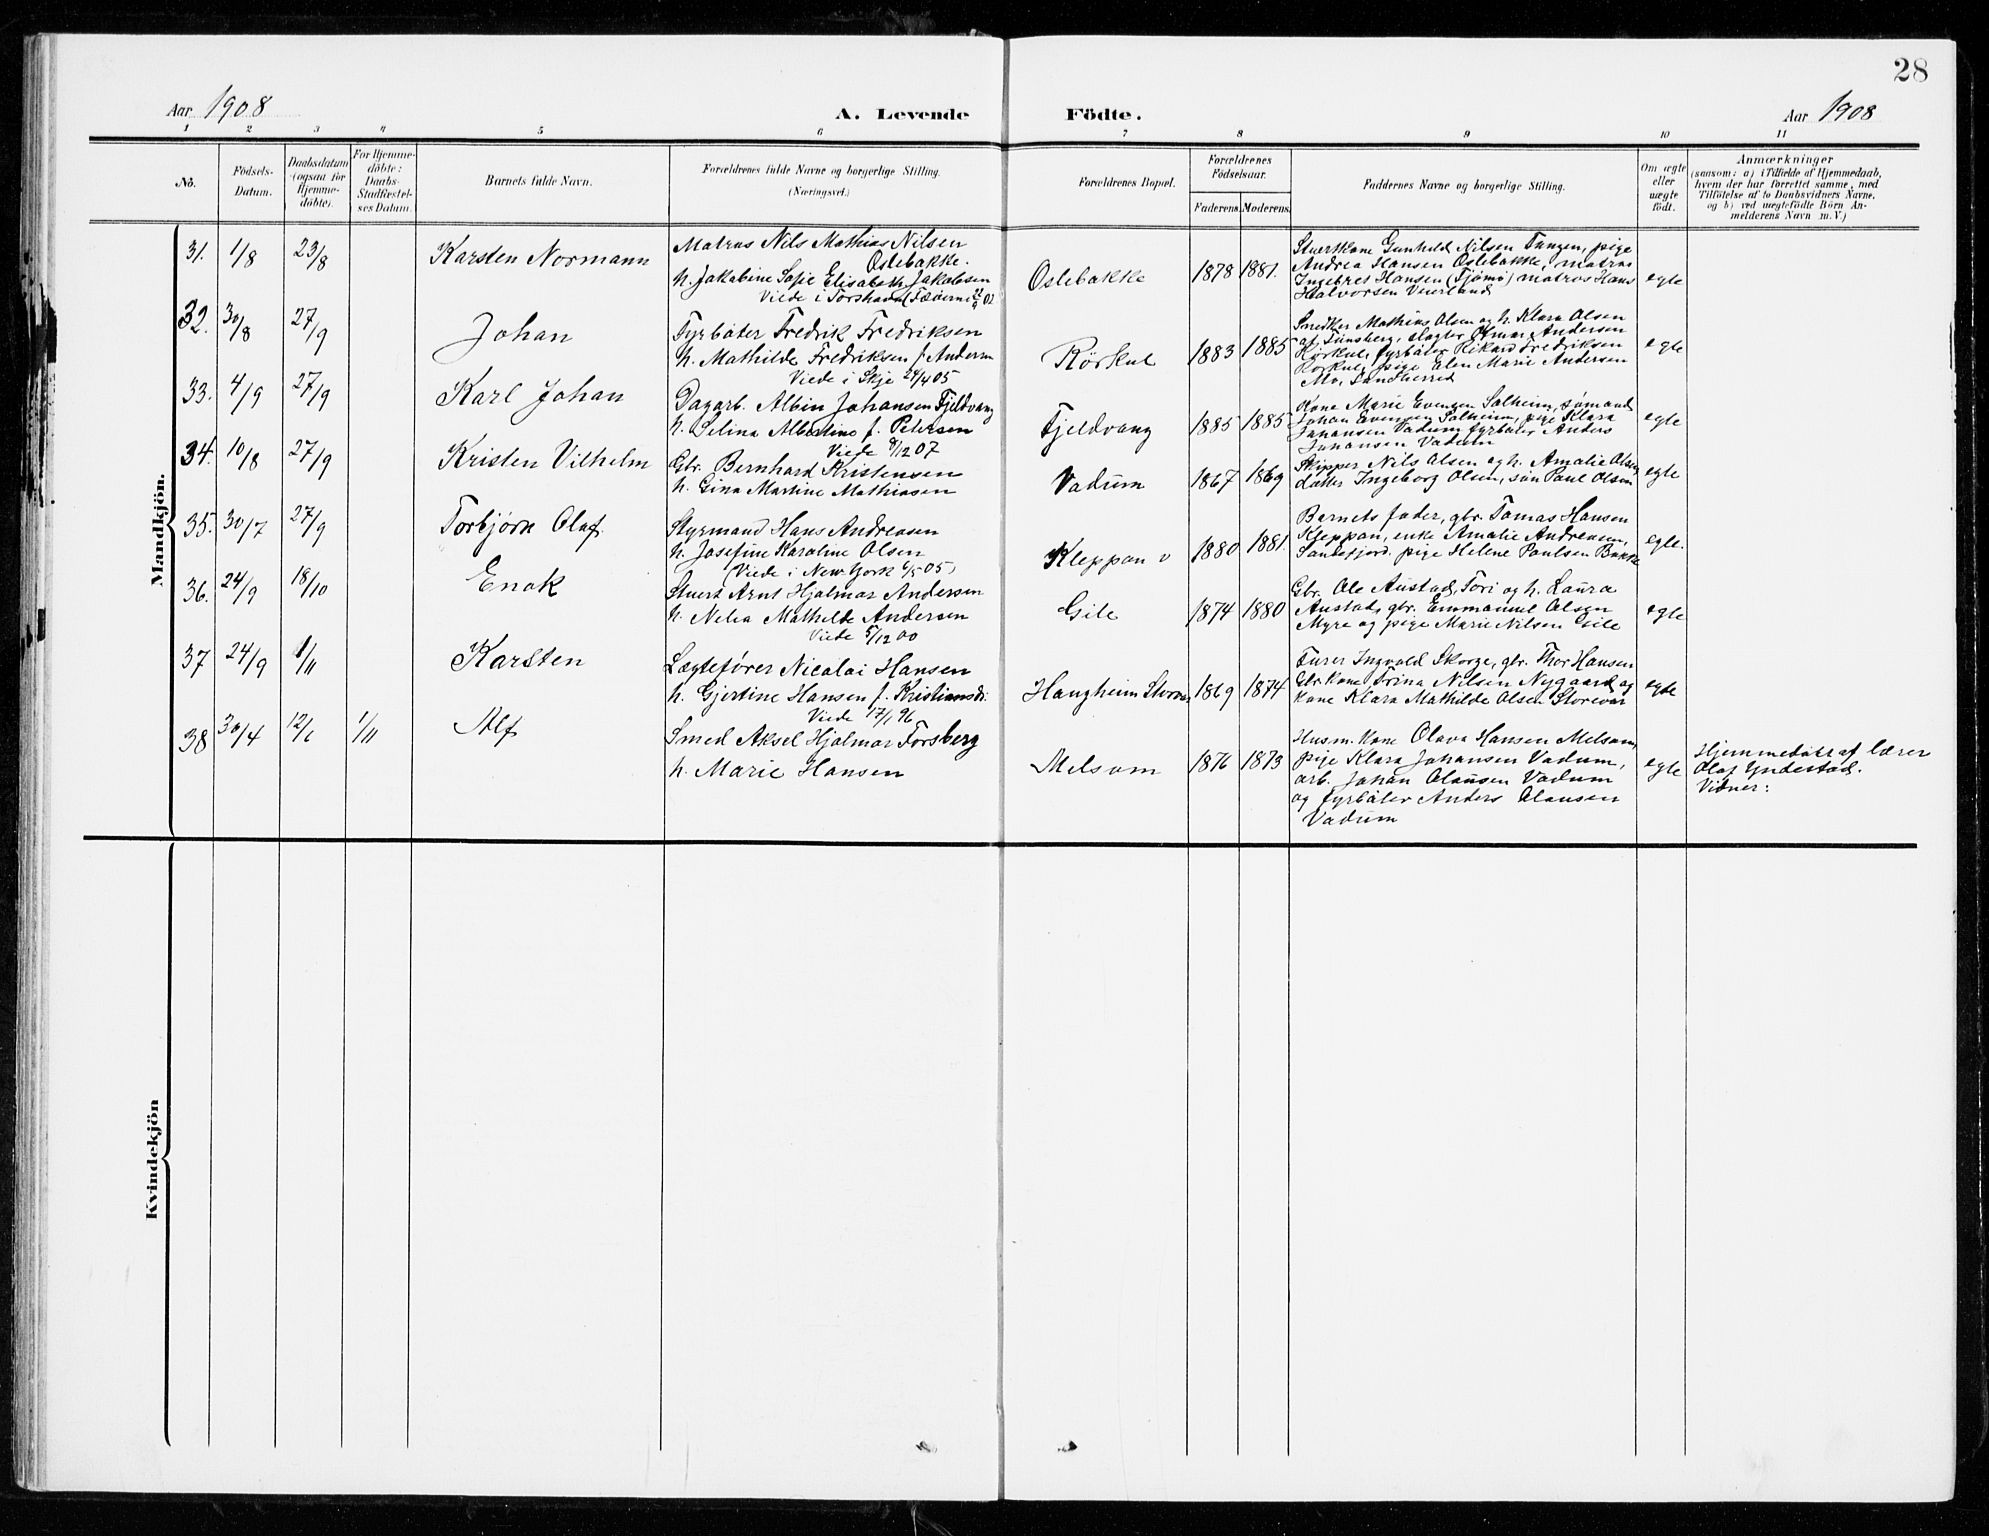 28
Aar 1908 A. Levende Födte. Aar 1908
1 2 3 4 5 6 7 8 9 10 11
No.
Födsels-
Datum.
Daabsdatum
(ogsaa for
Hjemme-
döbte).
For Hjemme-
döbte:
Daabs-
Stadfæstel-
ses Datum.
Barnets fulde Navn.
Forældrenes fulde Navne og borgerlige Stilling.
(Næringsvei.)
Forældrenes Bopæl.
Forældrenes
Födselsaar.
Faderens. Moderens.
Faddernes Navne og borgerlige Stilling.
Om ægte
eller
uægte
födt.
Anmærkninger
(saasom: a) i Tilfælde af Hjemmedaab,
hvem der har forrettet samme, med
Tilföielse af to Daabsvidners Navne,
og b) ved uægtefödte Börn An-
melderens Navn m. V.)
Mandkjön.
31. 1/8 23/8 Karsten Normann
Matros Nils Mathias Nilsen
Oslebakke.
h. Jakobine Sofie Elisabeth Jakobsen
Viede i Torshavn (Færerne) 02
Oslebakke 1878 1881.
Stuertkone Gunhild Nilsen Tangen, pige
Andrea Hansen Oslebakke, matros
Ingebret Hansen (Tjømø) matros Hans
Halvorsen Veierland
egte
32. 30/8 27/9 Johan
Fyrbøter Fredrik Fredriksen
h. Mathilde Fredriksen f. Andersen
Viede i Skje 24/4 05
Rørkul 1883 1885
Snedker Mathias Olsen og h. Klara Olsen
af Tunsberg, slagter Osmar Andersen
Rørkul, fyrbøter Rikard Fredriksen
Rørkul, pige Elen Marie Andersen
Mo, Sandherred
egte
33. 4/9 27/9 Karl Johan
Dagarb. Albin Johansen Fjeldvang
h. Selina Albertine f. Petersen
Viede 8/12 07
Fjeldvang 1885 1885
Kone Marie Evensen Solheim, sømand
Johan Evensen Solheim, pige Klara
Johansen Vadum fyrbøter Anders
Johansen Vadum
egte
34. 10/8 27/9 Kristen Vilhelm
Gbr. Bernhard Kristensen
h. Gina Martine Mathiasen
Vadum 1867 1869
Skipper Nils Olsen og h. Amalie Olsen
datter Ingeborg Olsen, søn Paul Olsen
egte
35. 30/7 27/9 Torbjørn Olaf.
Styrmand Hans Andreasen
h. Josefine Karoline Olsen
(Viede i New York 6/5 05)
Kleppan v 1880 1881.
Barnets fader, gbr. Tomas Hansen
Kleppan, enke Amalie Andreasen,
Sandefjord. pige Helene Paulsen Bakke
egte.
36. 24/9 18/10 Enok
Stuert Arnt Hjalmar Andersen
h. Nelia Mathilde Andersen
Viede 5/12 00
Gile 1874 1880
Gbr. Ole Austad, Tori og h. Laura
Austad, gbr. Emmanuel Olsen
Myre og pige Marie Nilsen Gile
egte
37 24/9 1/11 Karsten
Lægtefører Nicolai Hansen
h. Gjertine Hansen f. Kristiansdr.
Viede 17/1 96
Haugheim Storevar 1869 1874
Furer Ingvald Skorge, gbr. Thor Hansen
Gbr. kone Trina Nilsen Nygaard og
kone Klara Mathilde Olsen Storevar
egte
38 30/4 12/6 1/11 Alf
Smed Aksel Hjalmar Forsberg
h. Marie Hansen
Melsom 1876 1873
Husm. kone Olava Hansen Melsom,
pige Klara Johansen Vadum,
arb. Johan Olausen Vadum
og fyrbøter Anders Olausen
Vadum
egte
Hjemmedøbt af lærer
Olaf Yndestad.
Vidner:
Kvindekjön